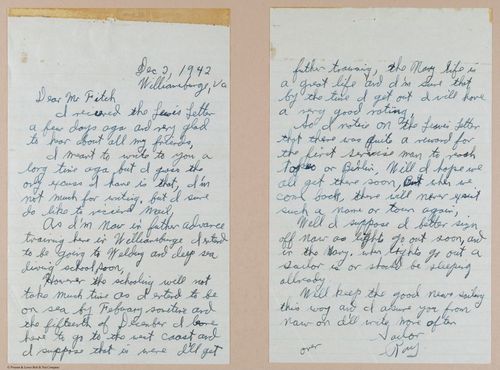 Dec 2, 1942
Williamsburge, Va
Dear Mr Fitch
I received the Lewis Letter
a few days ago and very glad
to hear about all my friends,
I meant to write to you a
long time ago but I guess the
only excuse I have is that, I'm
not much for writing, but I sure
do like to receive mail,
As I'm now in futher advance
training here in Williamsburge I intend
to be going to Welding and deep sea
diving school soon,
However the schooling will not
take much time as I intend to be
on sea by February sometime and
the fifteenth of December I leave
here to go to the west coast and
I suppose that is were I'll get
over
futher training, the Navy life is
a great life and I'm sure that
by the time I get out I will have
a very good rating,
So I notice on the Lewis Letter
that there was quite a reward for
the first service man to reach
or Berlin, Well I hope we
all get there soon, But when we
come back, there will never exist
such a name or town again,
Well I suppose I better sign
off now as lights go out soon and
in the Navy, when lights go out a
Sailor is or should be sleeping
already
Will keep the good news
this way and I assure you from
now on I'll write more often
Sailor
Ray